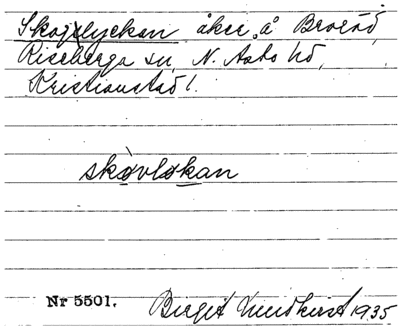 Skogslyckan åker å Broröd,
Riseberga sn, N. Åsbo hd,
Kristianstad l.
skòvlo̱ka̱n
Nr 5501.
Birgit Lundkvist 1935